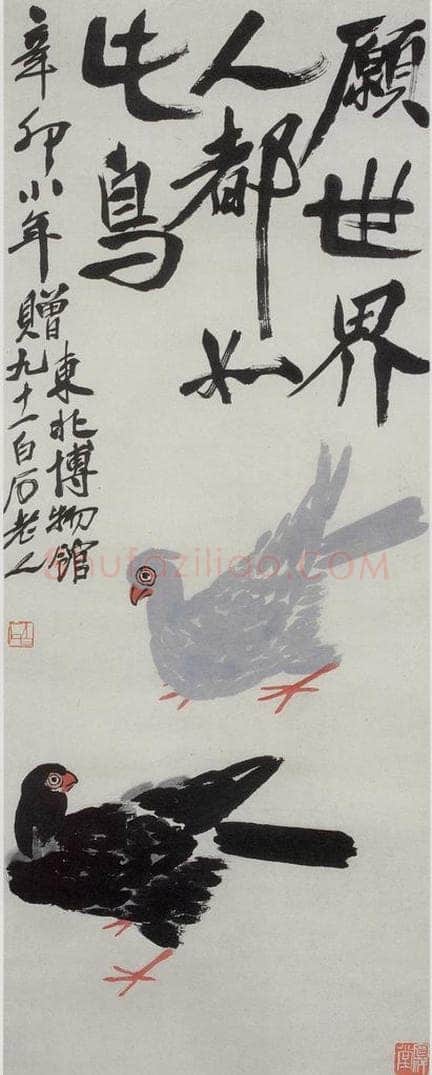 願世界
人都如
此鳥
辛卯小年
贈東北博物館
九十一白石老人
shufaziliao.COM